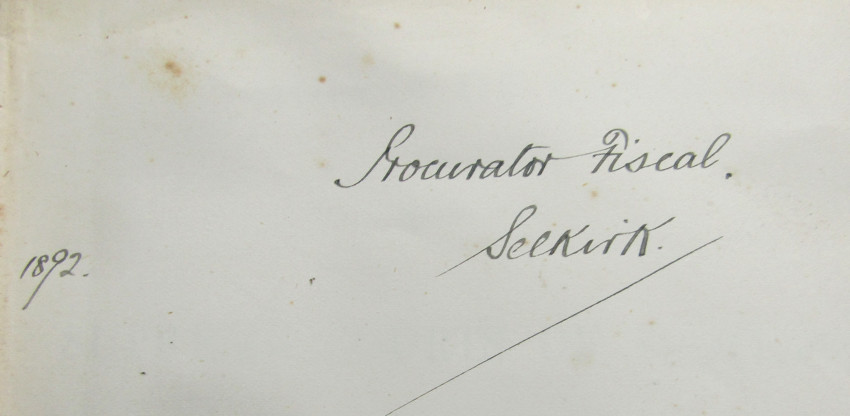 Procurator Fiscal.
Selkirk.
1892.